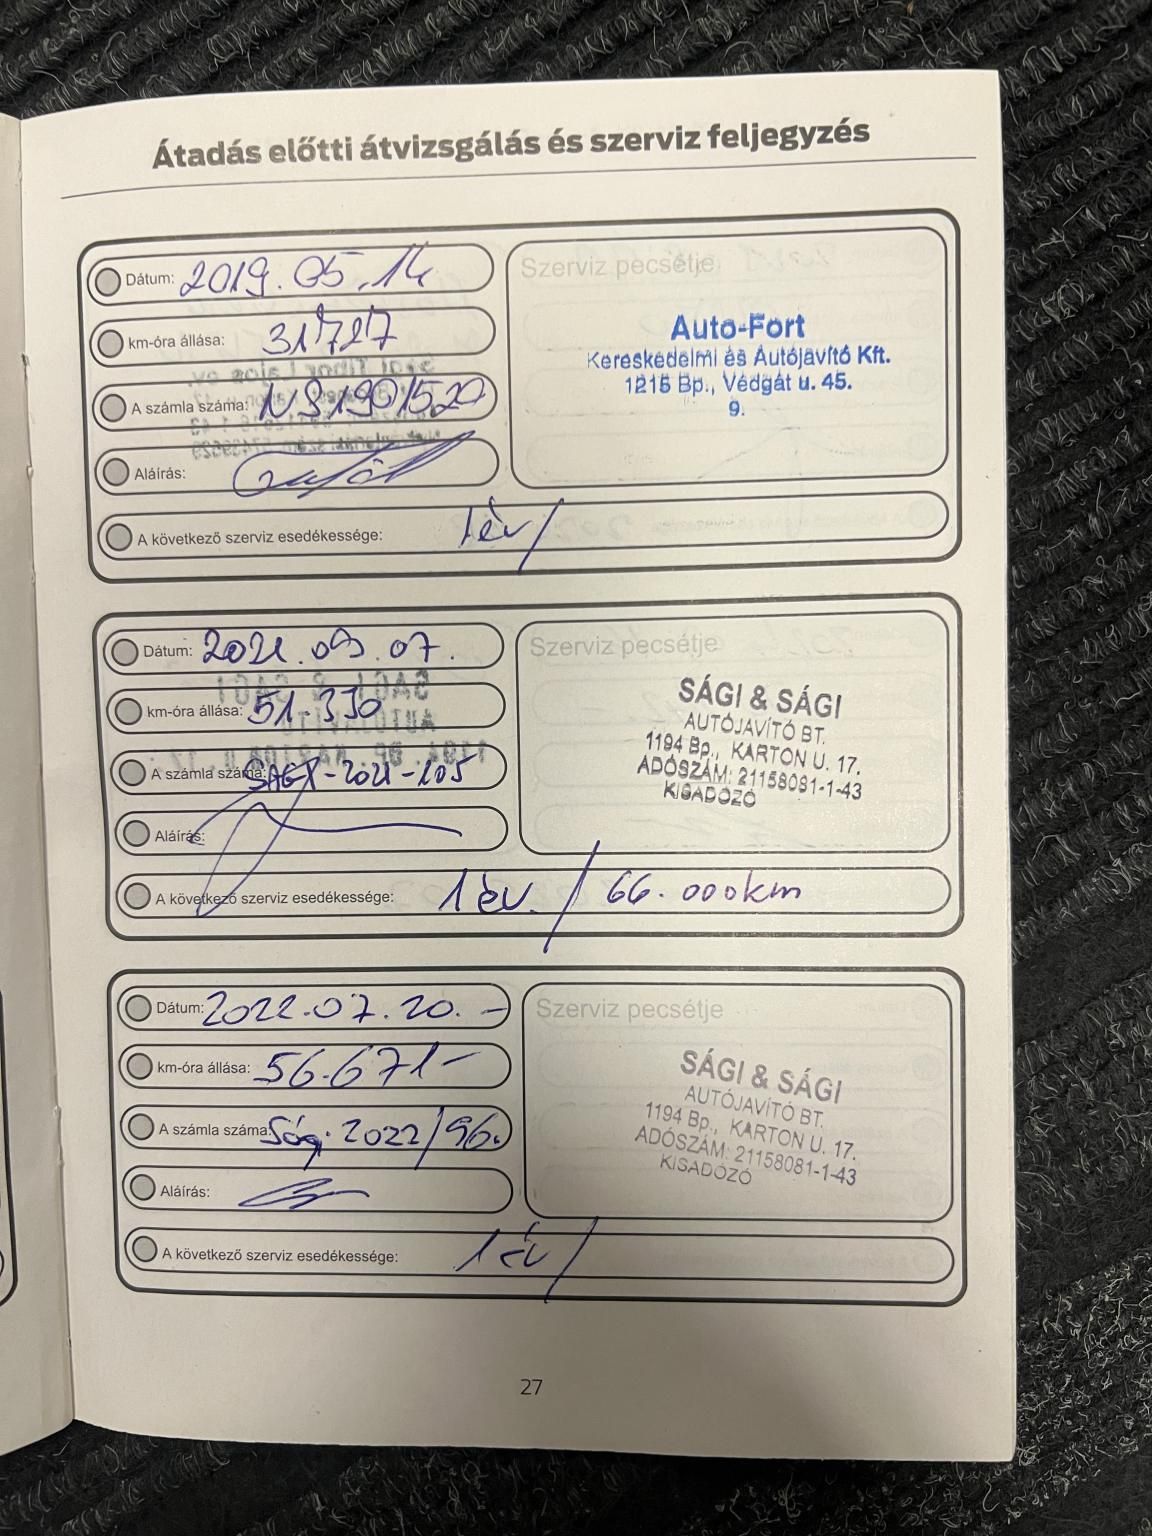 Átadás előtti átvizsgálás és szerviz feljegyzés
Dátum: 2019.05.14
km-óra állása: 31727
A számla száma:
Aláírás:
A következő szerviz esedékessége: 1 év/
Szerviz pecsétje
Auto-Fort
Kereskedelmi és Autójavító Kft.
1215 Bp., Védgát u. 45.
9.
Dátum: 2021.09.07.
km-óra állása: 51.330
A számla száma: SAGI-2021-105
Aláírás:
A következő szerviz esedékessége: 1 év. / 66.000km
Szerviz pecsétje
SÁGI & SÁGI
AUTÓJAVÍTÓ BT.
1194 Bp., KARTON U. 17.
ADÓSZÁM: 21158081-1-43
KISADÓZÓ
Dátum: 2022.07.20.-
km-óra állása: 56.671-
A számla száma: Ság. 2022/96.
Aláírás:
A következő szerviz esedékessége: 1 év/
Szerviz pecsétje
SÁGI & SÁGI
AUTÓJAVÍTÓ BT.
1194 Bp., KARTON U. 17.
ADÓSZÁM: 21158081-1-43
KISADÓZÓ
27